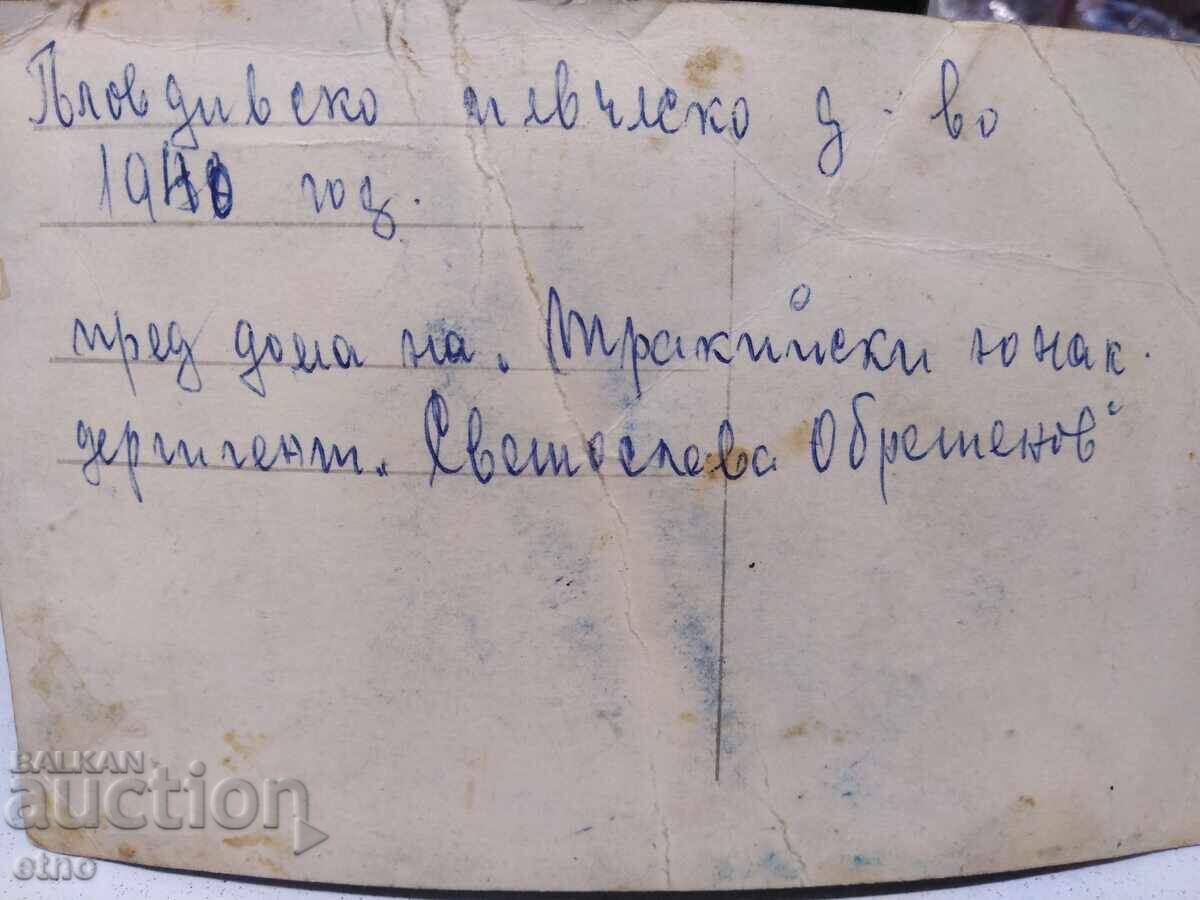 Пловдивско певческо д-во
год.
пред дома на „Тракийски юнак.
дергигент „Светослава Обретенов"
BALKAN
auction
etno